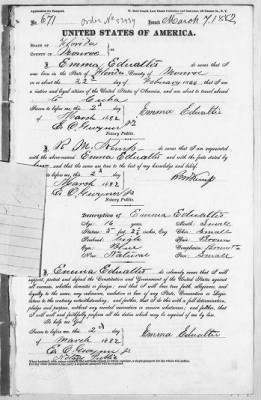 No. 671
Issued March 7, 1882
UNITED STATES OF AMERICA.
STATE OF Florida
COUNTY OF Monroe
I, Emma Edualtes do swear that I
was born in the State of Florida County of Monroe
on or about the 22 day of February 1866 that I am
a native and loyal citizen of the United States of America, and am about to travel abroad
to Cuba
Sworn to before me, this 2d day
Emma Edualtes
of March 1882
Notary Public.
I, do swear that I am acquainted
with the above-named Emma Edualtes and with the facts stated by
and that the same are true to the best of my knowledge and belief.
Sworn to before me, this 2d day
of March 1882
Notary Public.
Description of Emma Edualtes
Age: 16 years
Mouth: Small
Stature: 5 feet inches, Eng.
Chin: Small
Forehead: high
Hair: Brown
Eyes: Blue
Complexion:
Nose: Natural
Face: Small
I, Emma Edualtes do solemnly swear that I will
support, protect and defend the Constitution and Government of the United States against
all enemies, whether domestic or foreign; and that I will bear true faith, allegiance, and
loyalty to the same, any ordinance, resolution or law of any State, Convention or Legis-
lature to the contrary notwithstanding; and further, that I do this with a full determination,
pledge and purpose, without any mental reservation or evasion whatsoever; and further, that
I will well and faithfully perform all the duties which may be required of me by law.
So help me God.
Sworn to before me, this 2d day
Emma Edualtes
of March 1882
Notary Public